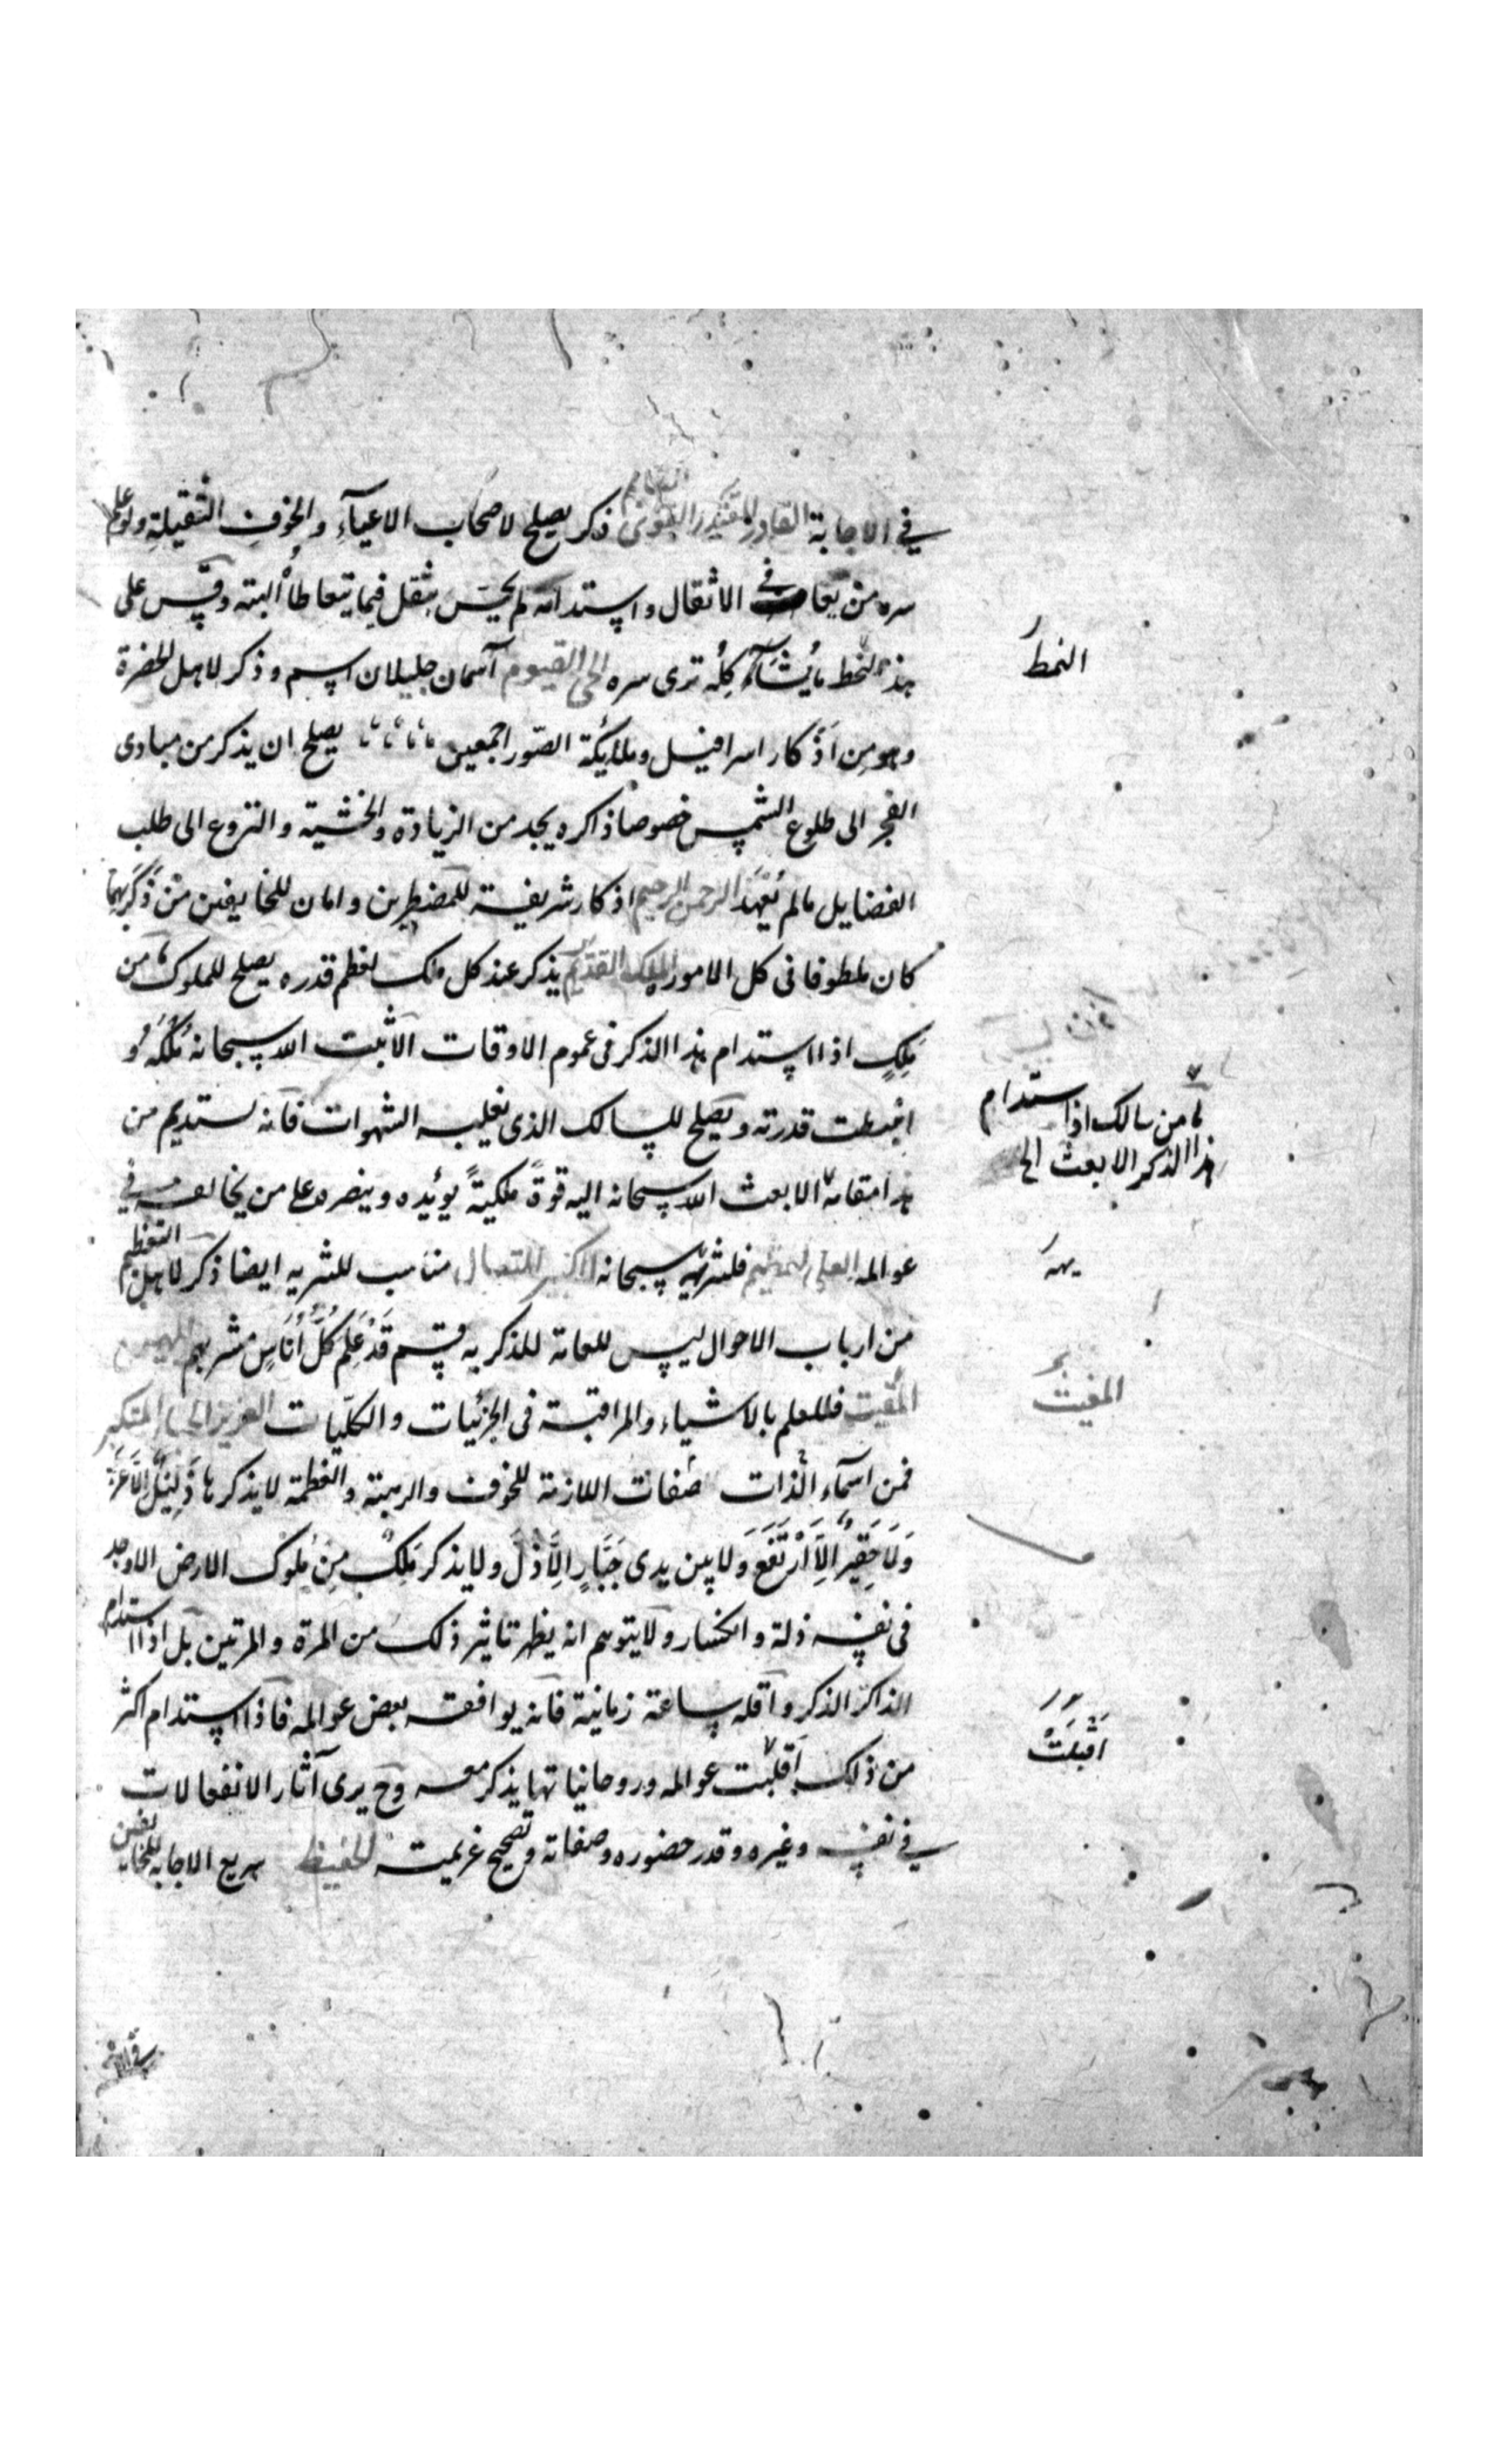 في الاجابة القادر المقتدر القوى القايم ذكر يصلح لاصحاب الاعيآء والخوف الثقيلة ولو علم
سره من يعانى الاثقال واستدامه لم يحس بثقل فيما يتعاطاه البته وقس على
هذا النمط ما يشآء كله ترى سره الحى القيوم آسمان جليلان اسم وذكر لاهل الحضرة
وهو من اذكار اسرافيل وملائكة الصور اجمعين يصلح ان يذكر من مبادى
الفجر الى طلوع الشمس خصوصا ذاكره يجد من الزيادة والخشية والنزوع الى طلب
الفضايل ما لم يعهد الرحمن الرحيم اذكار شريفة للمضطرين وامان للخايفين من ذكربهما
كان ملطوفا فى كل الامور الملك القديم يذكر عند كل ملك لعظم قدره يصلح للملوك ما من
ملك اذا استدام هذا الذكر فى عموم الاوقات الا ثبت الله سبحانه ملكه و
قدرته ويصلح للسالك الذى تغلبه الشهوات فانه يستديم من
هذا مقامه الا بعث الله سبحانه اليه قوة ملكية يؤيده وينصره على من يخالفه فى
عوالمه العلى العظيم فلتنزيهه سبحانه الكبير المتعال مناسب للتنزيه ايضا ذكر لاهل التعظيم
من ارباب الاحوال ليس للعامة للذكر به قسم قد علم كل اناس مشربهم المهيمن
المقيت فللعلم بالاشياء والمراقبة فى الجزئيات والكليات العزيز الجبار المتكبر
فمن اسمآء الذات صفات اللازمة للخوف والرهبة والعظمة لا يذكرها ذليل الا عز
ولا حقير الا ارتفع ولا بين يدى جبار الا ذل ولا يذكر ملك من ملوك الارض الا وجد
فى نفسه ذلة وانكسار ولا يتوهم انه يظهر تاثير ذلك من المرة والمرتين بل اذا استدام
الذاكر الذكر واقله ساعة زمانية فانه يوافقه بعض عوالمه فاذا استدام اكثر
من ذلك اقلبت عوالمه وروحانياتها يذكر معه وح يرى آثار الانفعالات
فى نفسه وغيره وقدر حضوره وصفاته وتصحيح عزيمته الحفيظ سريع الاجابه للخايفين
النمط
ما من سالك اذا استدام
هذا الذكر الا بعث الخ
يهه
المغيث
اقبلت